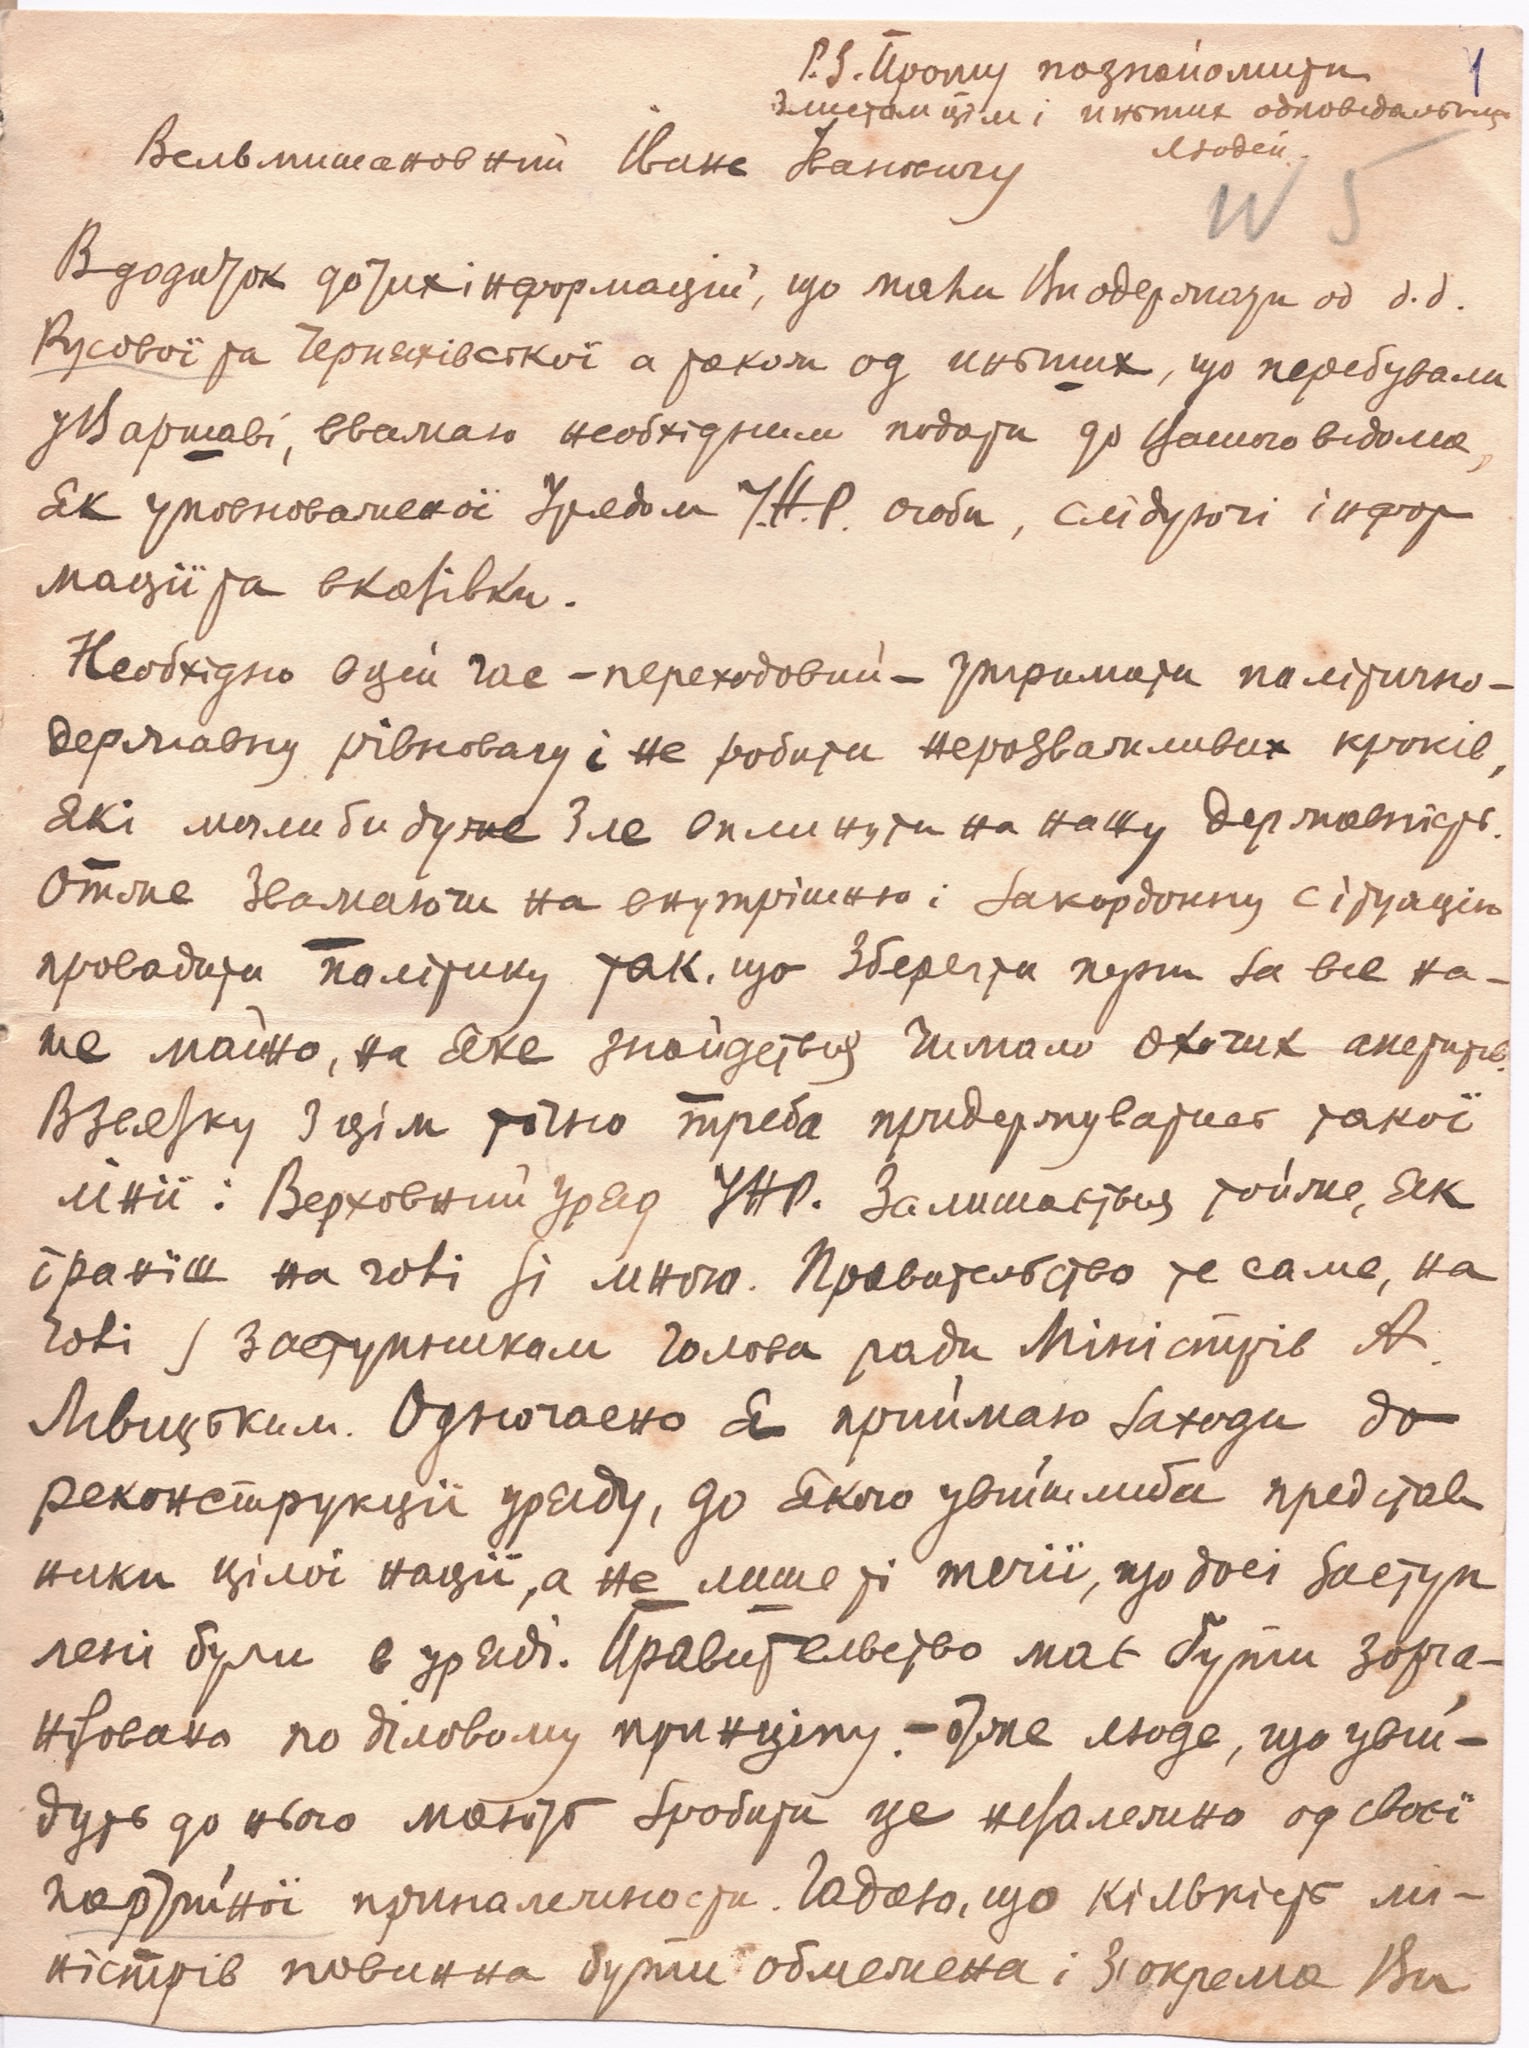 P.S. Прошу познайомити
з листом цім і иньших одповідальних
людей.
1
Вельмишановний Іване Івановичу
N 5
В додаток до тих інформацій, що мали Ви одержати од д.д.
Русової та Черняхівської а також од иньших, що перебували
у Варшаві, вважаю необхідним подати до Вашого відома,
як уповноваженої Урядом У.Н.Р. особи, слідуючі інфор
мації та вказівки.
Необхідно в цей час – переходовий – утримати политично-
державну рівновагу і не робити нерозважливих кроків,
які могли би дуже зле вплинути на нашу державність.
Отже зважаючи на внутрішню і закордонну сітуацію
провадити політику так, що зберегти перш за все на-
ше майно, на яке знайдеться чимало охочих апетитів.
В звязку з цім точно треба придержуватись такої
лінії: Верховний уряд УНР. залишається той же, як
і раніш на чолі зі мною. Правительство те саме, на
чолі з заступником Голови ради Міністрів А.
Лівицьким. Одночасно я приймаю заходи до
реконструкції уряду, до якого увійшли би представ
ники цілої нації, а не лише ті течії, що досі заступ
лені були в уряді. Правительство має бути зорга-
нізовано по діловому принціпу. – Отже люде, що увій-
дуть до нього мають зробити це незалежно од своєї
партійної приналежности. Гадаю, що кількість мі-
ністрів повинна бути обмежена і зокрема Ви